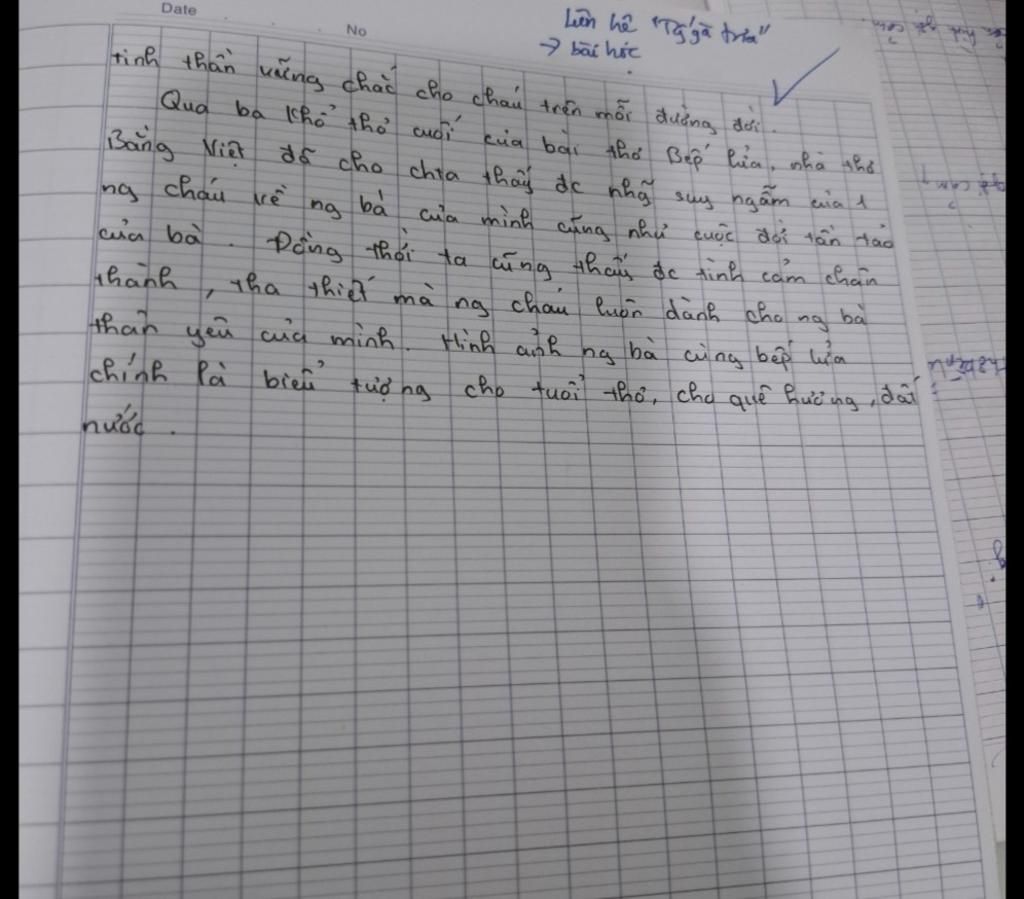 Date
No
Liên hệ "Tg gà trưa"
→ bài học
tinh thần vững chắc cho cháu trên mỗi đường đời.
Qua ba khổ thơ cuối của bài thơ Bếp lửa, nhà thơ
Bằng Việt đã cho chta thấy đc nhg suy ngẫm của 1
ng cháu về ng bà của mình cũng như cuộc đời tần tảo
của bà. Đồng thời ta cũng thấy đc tình cảm chân
thành, tha thiết mà ng cháu luôn dành cho ng bà
thân yêu của mình. Hình ảnh ng bà cùng bếp lửa
chính là biểu tượng cho tuổi thơ, cho quê hương, đất
nước.